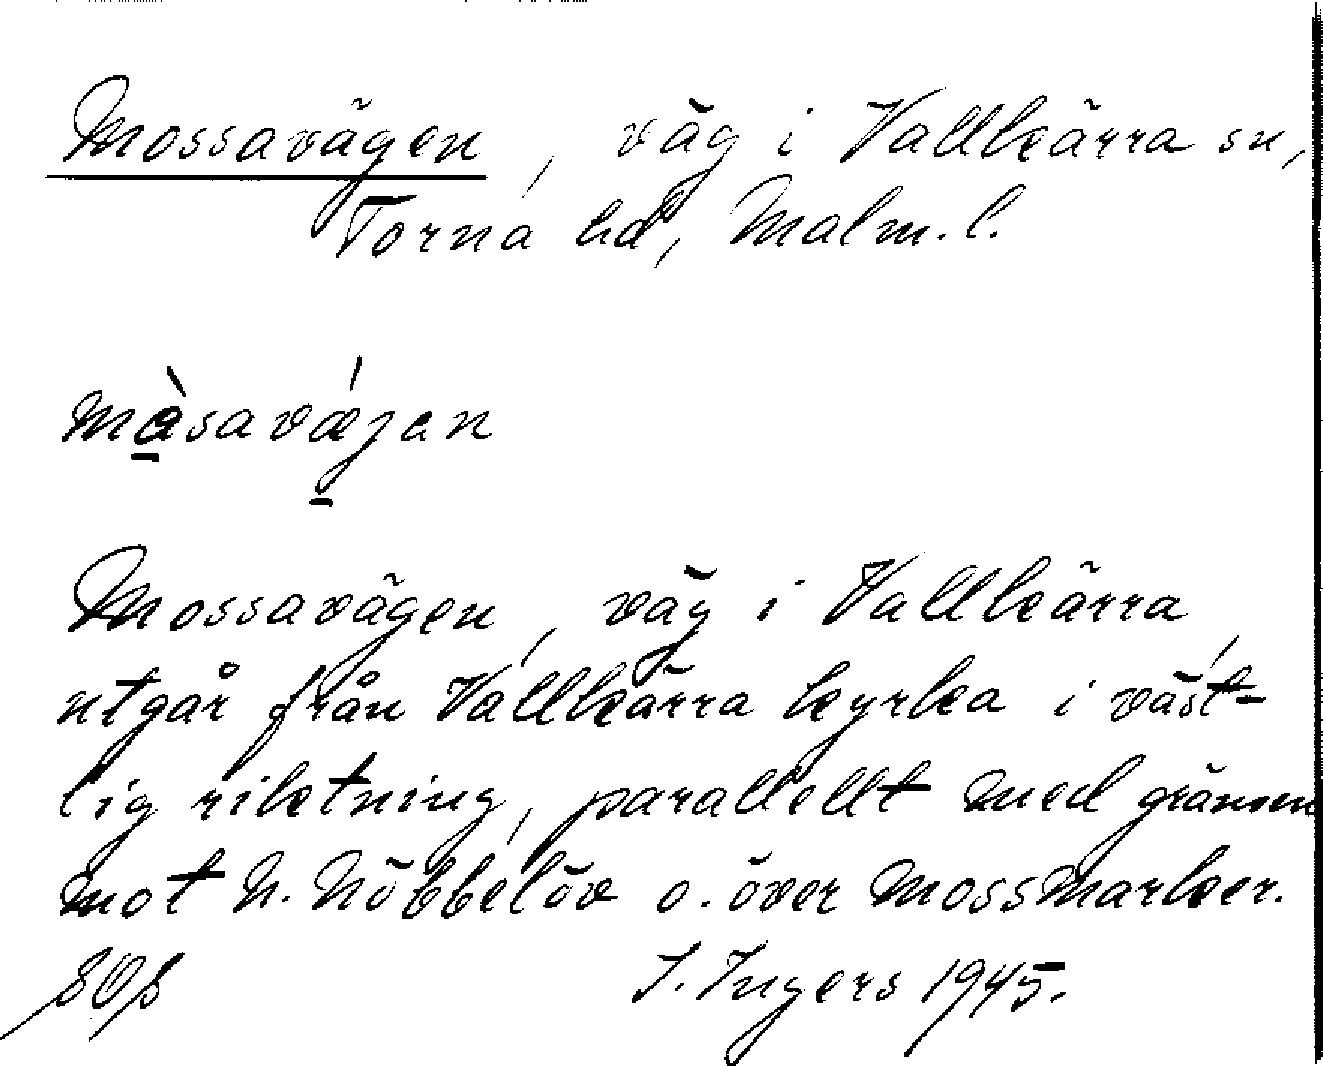 Mossavägen, väg i Vallkärra sn,
Torna hd, Malm. l.
Mossavägen, väg i Vallkärra,
utgår från Vallkärra kyrka i väst-
lig riktning, parallellt med gränsen
mot N. Nöbbelöv o. över mossmarker.
I. Ingers 1945.